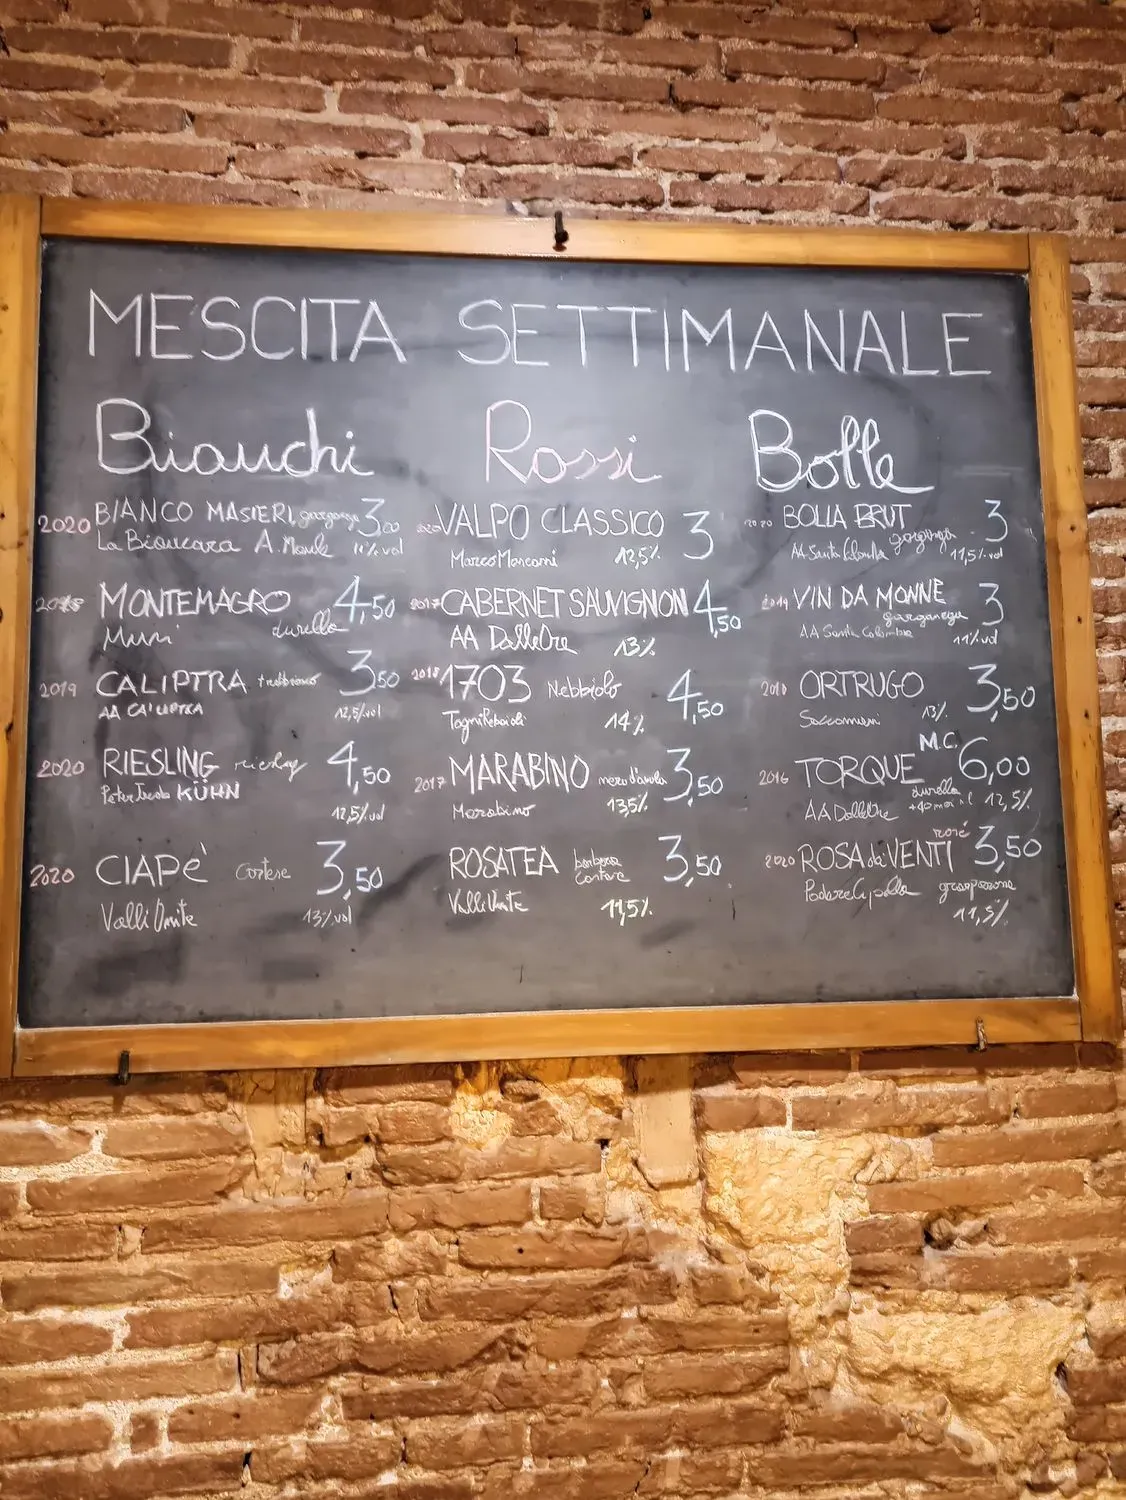 MESCITA SETTIMANALE
Bianchi
2020 BIANCO MASIERI, garganega 3,00
La Biancara A. Maule 11% vol
2018 MONTEMAGRO durella 4,50
Muni
2019 CALIPTRA trebbiano 3,50
AA CALIPTRA 12,5% vol
2020 RIESLING riesling 4,50
Peter Jacob KÜHN 12,5% vol
2020 CIAPè Cortese 3,50
Valli Unite 13% vol
Rossi
2020 VALPO CLASSICO 3
Marco Mancani 12,5%
2017 CABERNET SAUVIGNON 4,50
AA DalleOre 13%
2018 1703 Nebbiolo 4,50
Togni Rebaioli 14%
2017 MARABINO nero d'avola 3,50
Marabino 13,5%
ROSATEA barbera 3,50
Cortese
Valli Unite 11,5%
Bolle
2020 BOLLA BRUT 3
garganega
AA Santa Colomba 11,5% vol
2019 VIN DA MONNE 3
garganega
AA Santa Colomba 11% vol
ORTRUGO 3,50
Saccomani 13%
2016 TORQUE M.C. 6,00
durella
AA DalleOre 12,5%
2020 ROSA dei VENTI rosé 3,50
Podere Cipolla grasparossa
11,5%